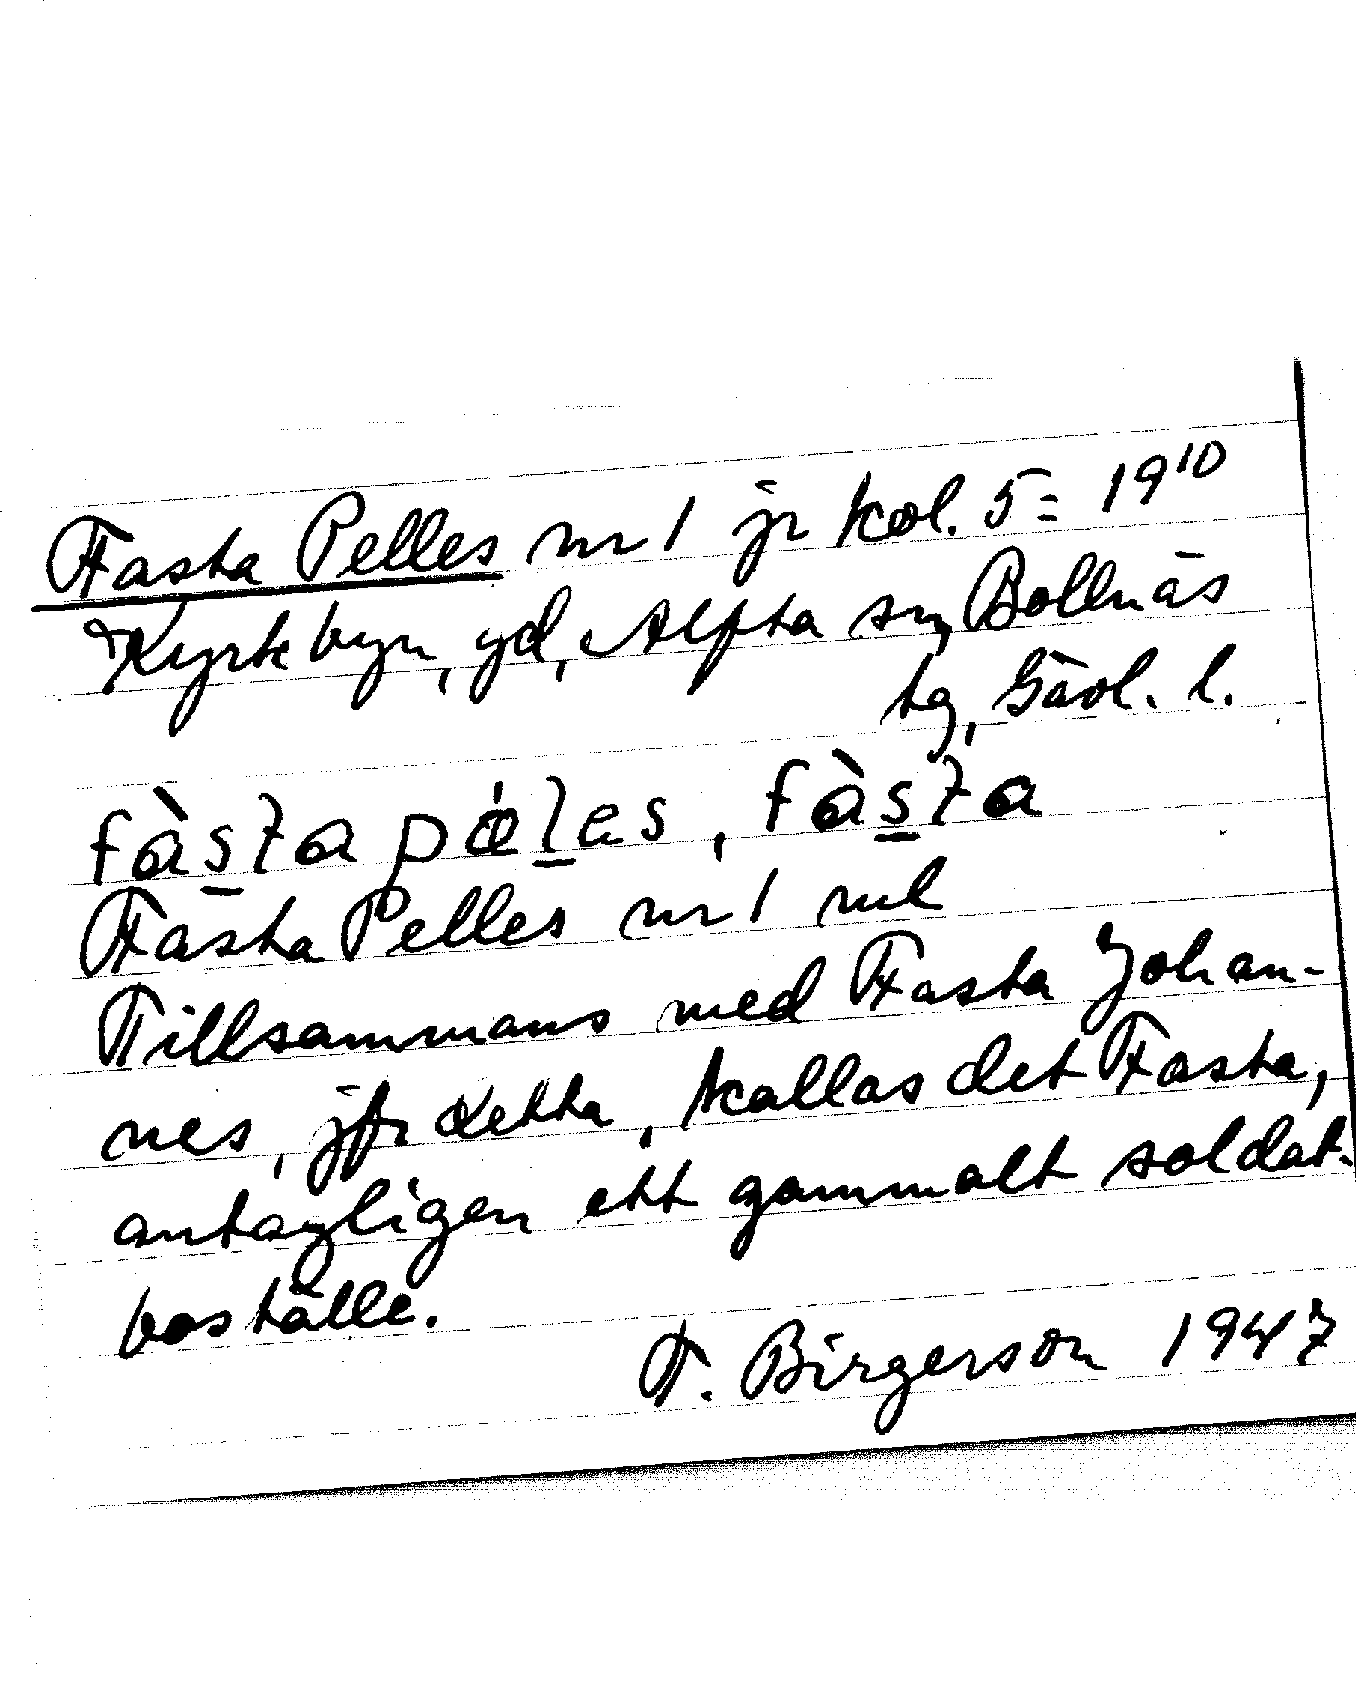 Fasta Pelles nr 1 jr kol. 5 = 19¹⁰
Kyrkbyn, gd, Alfta sn, Bollnäs
tg, Gävl. l.
fàsta pǽles, fàsta
Fasta Pelles nr 1 rul
Tillsammans med Fasta Johan-
nes, jfr detta, kallas det Fasta,
antagligen ett gammalt soldat-
boställe.
T. Birgerson 1947